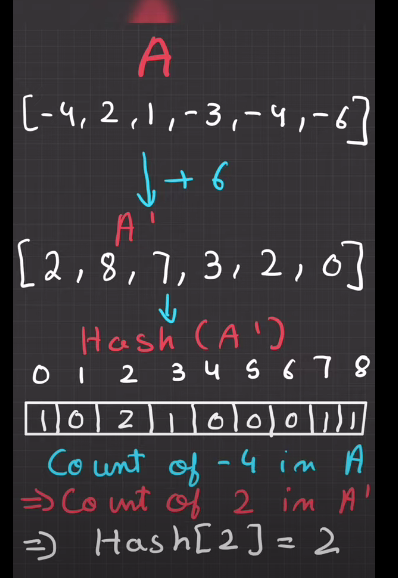 A
[-4, 2, 1, -3, -4, -6]
+ 6
A'
[2, 8, 7, 3, 2, 0]
Hash (A')
0 1 2 3 4 5 6 7 8
1 0 2 1 0 0 0 1 1
Count of -4 in A
⇒ Count of 2 in A'
⇒ Hash[2] = 2